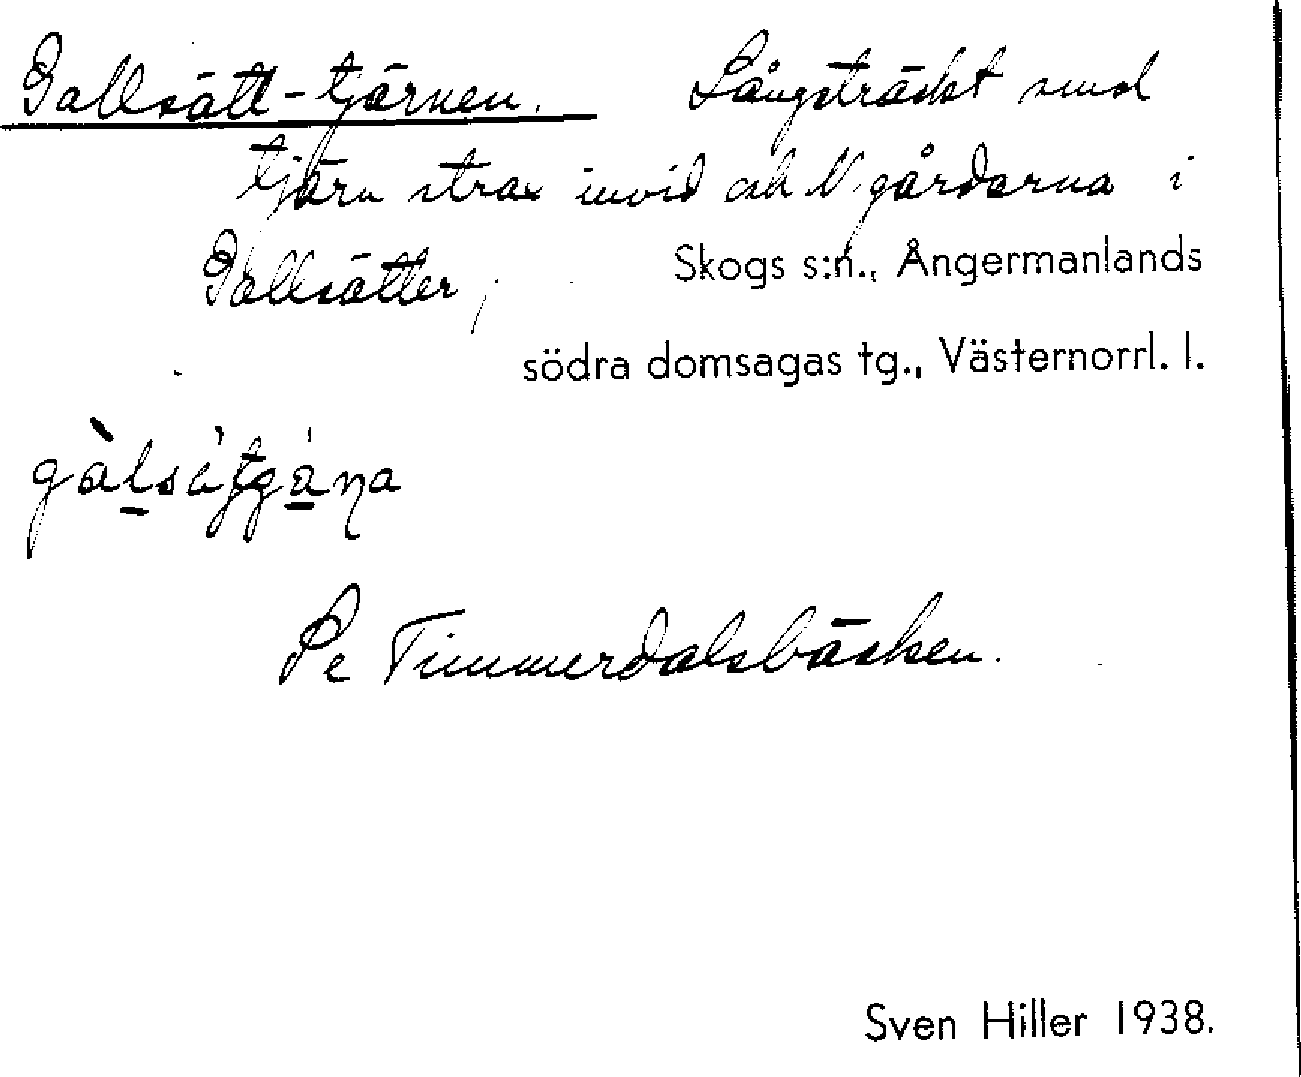 Gallsätt-tjärnen. Långsträckt smal
tjärn strax invid och N. gårdarna i
Gallsätter, Skogs s:n., Ångermanlands
södra domsagas tg., Västernorrl. l.
Se Timmerdalsbäcken.
Sven Hiller 1938.